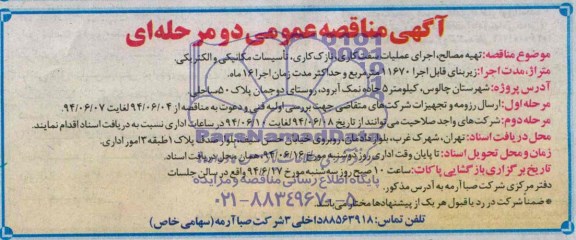 آگهی مناقصه عمومی دو مرحله‌ای
موضوع مناقصه: تهیه مصالح، اجرای عملیات سفت‌کاری، نازک‌کاری، تأسیسات مکانیکی و الکتریکی.
متراژ، مدت اجرا: زیربنای قابل اجرا ۱۱۶۷۰ مترمربع و حداکثر مدت زمان اجرا ۱۶ ماه.
آدرس پروژه: شهرستان چالوس، کیلومتر ۵ جاده نمک آبرود، روستای دوجمان پلاک ۵۰ ساحلی
مرحله اول: ارسال رزومه و تجهیزات شرکت‌های متقاضی جهت بررسی اولیه فنی و دعوت به مناقصه از ۹۴/۰۶/۰۴ لغایت ۹۴/۰۶/۰۷.
مرحله دوم: شرکت‌های واجد صلاحیت می‌توانند از تاریخ ۹۴/۰۶/۰۸ لغایت ۹۴/۰۶/۱۰ در ساعات اداری نسبت به دریافت اسناد اقدام نمایند.
محل دریافت اسناد: تهران، شهرک غرب، بلوار دادمان، روبروی خیابان حسن سیف، بلوار صدف پلاک ۱ طبقه ۳ امور اداری.
زمان و محل تحویل اسناد: تا پایان وقت اداری روز دوشنبه مورخ ۹۴/۰۶/۱۶، همان محل دریافت اسناد.
تاریخ برگزاری بازگشایی پاکات: ساعت ۱۰ صبح روز سه‌شنبه مورخ ۹۴/۶/۲۷ واقع در سالن جلسات
دفتر مرکزی شرکت صبا آرمه به آدرس مذکور.
* ضمناً شرکت در رد یا قبول هر یک از پیشنهادها مختار می‌باشد.
تلفن تماس: ۸۸۵۶۳۹۱۸ داخلی ۳ شرکت صبا آرمه (سهامی خاص)
ParsNamadData
پایگاه اطلاع رسانی مناقصه و مزایده
۰۲۱-۸۸۳۴۹۶۷۰-۵